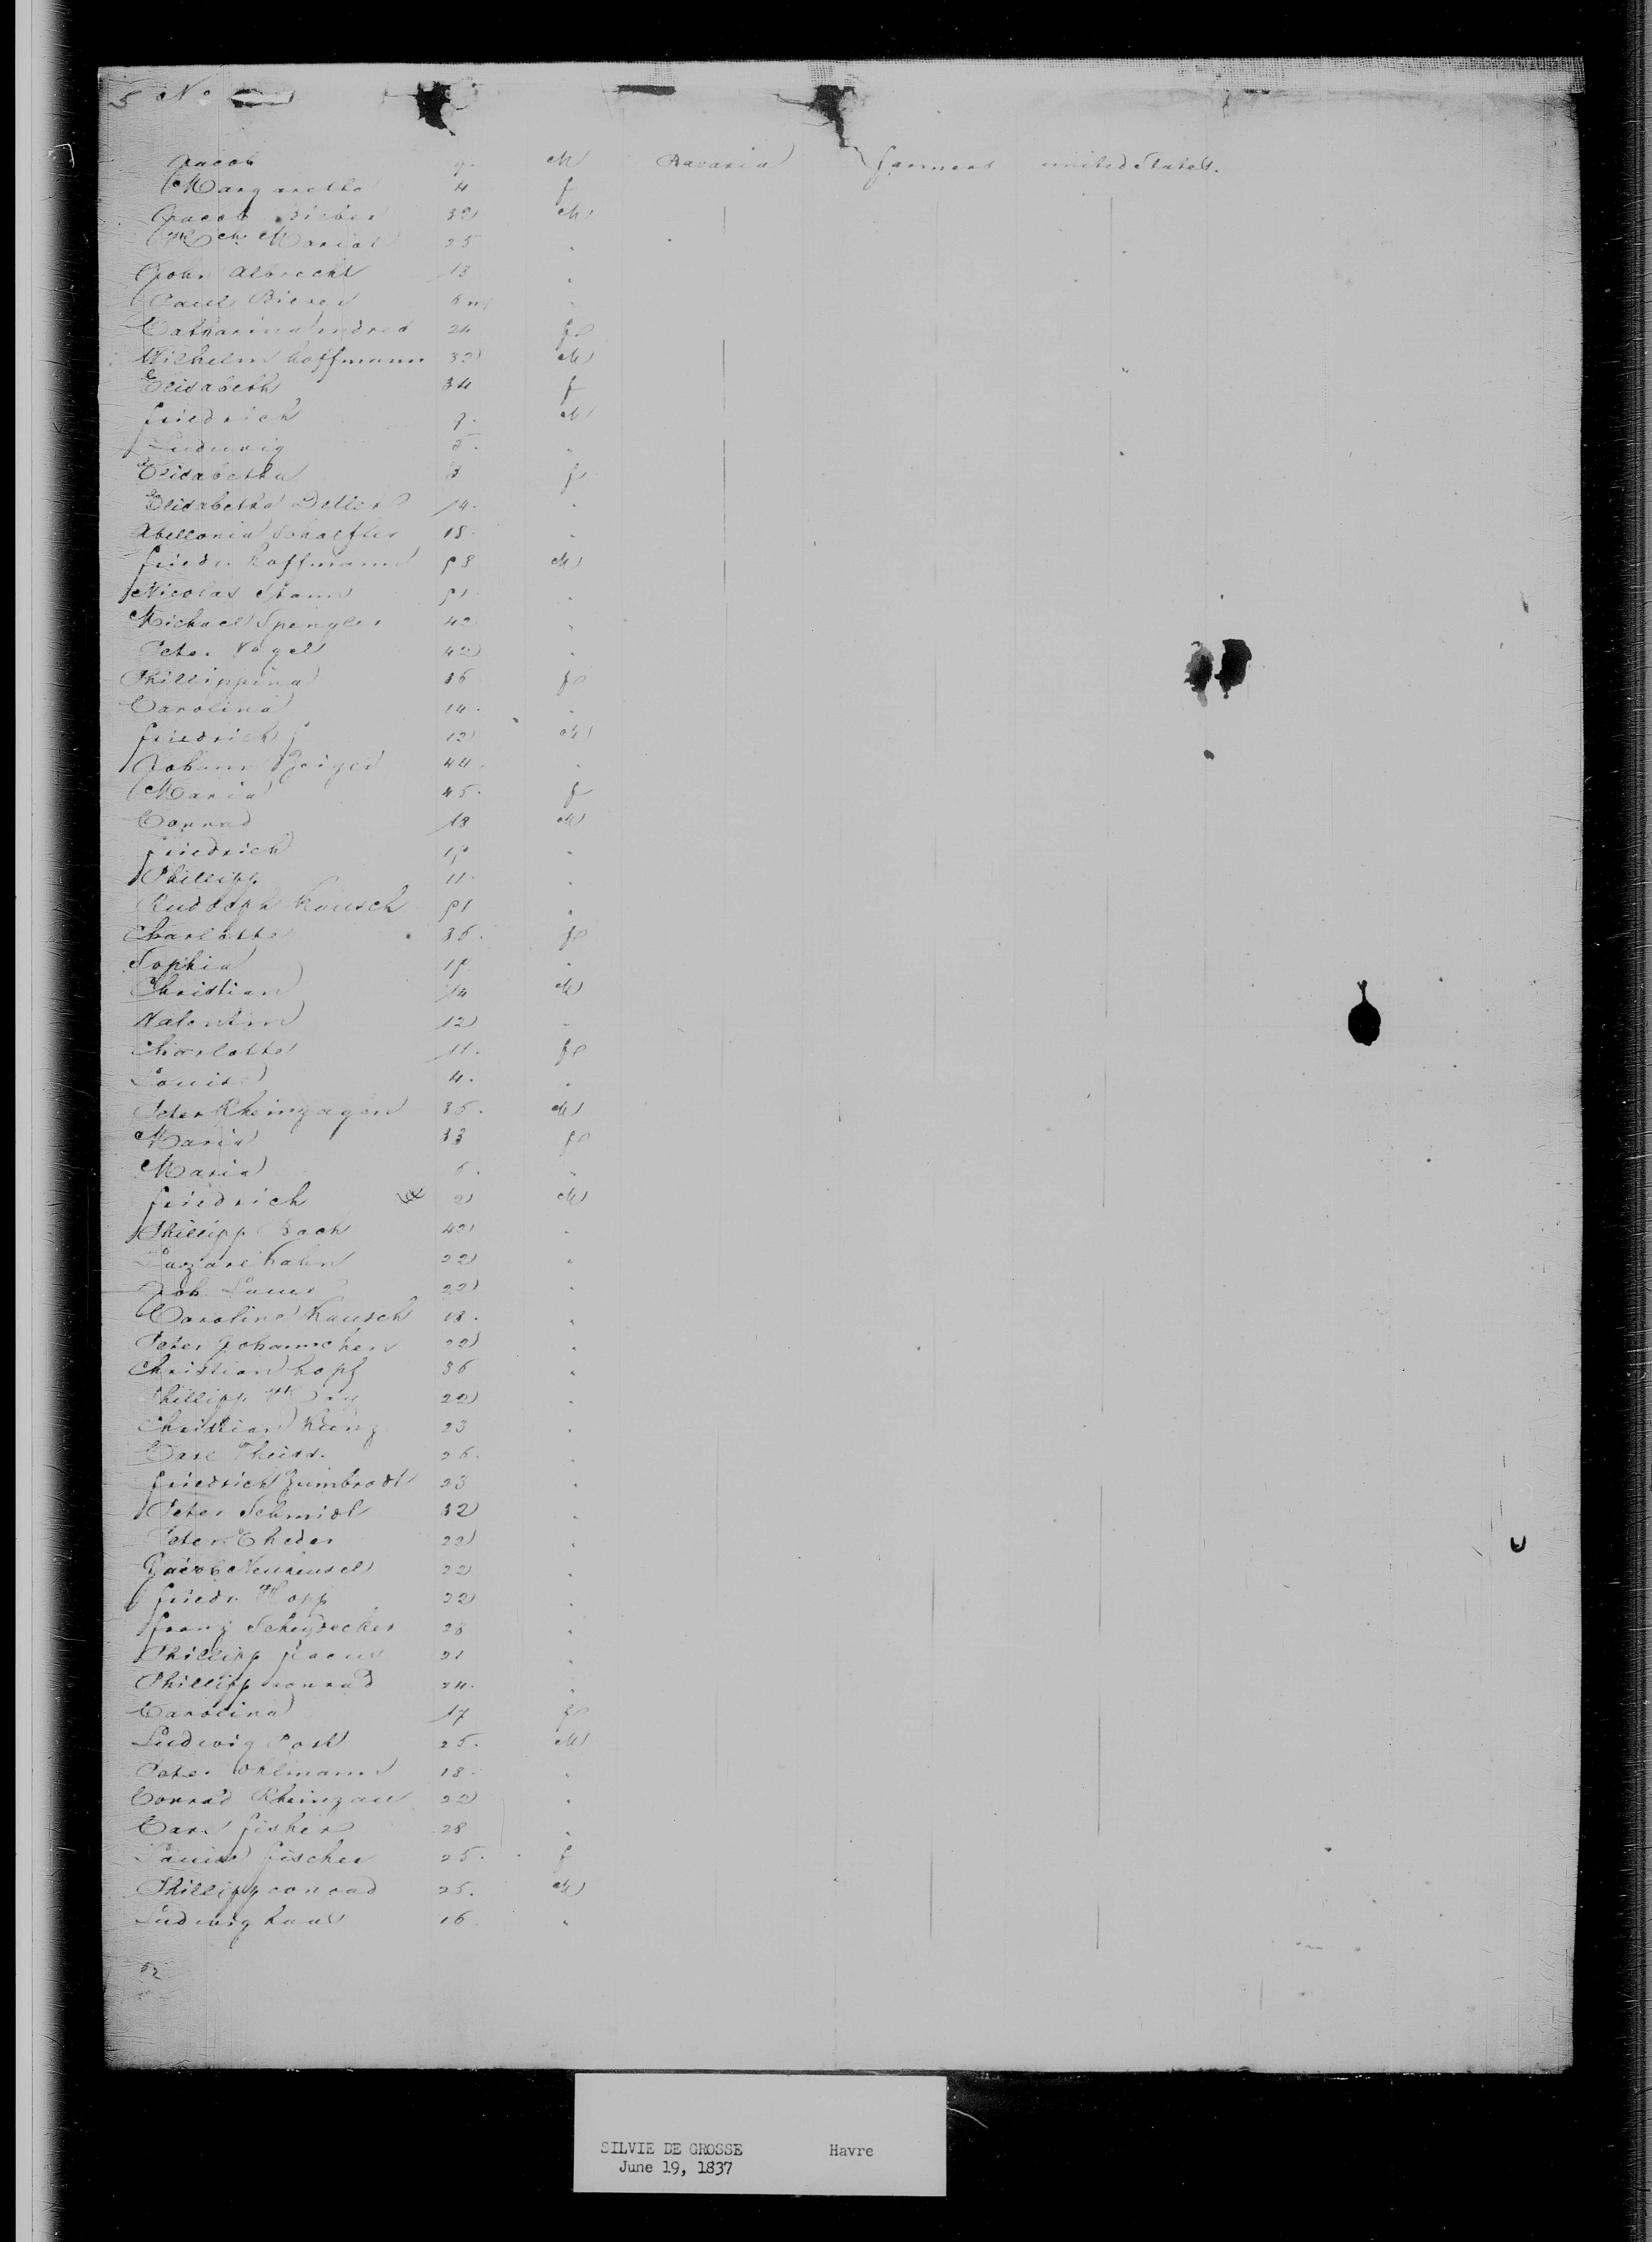 5 No
Jacob 9. M Bavaria farmers united States.
Margaretha 4 f
Jacob Bieber 32 M
Maria 25 "
John Albrecht 13 "
Paul 6 m "
Catharina 24 fe
Wilhelm hoffmann 32 M
Elisabeth 34 f
friedrich 9. M
Ludwig 5. "
Elisabetha 3 f
Elisabetha 14. "
Abellonia Schaeffer 18. "
friedr. hoffmann 58 M
Nicolas 51 "
Michael Spengler 42 "
Peter Vogel 42 "
Phillippina 36 fe
Carolina 14. "
friedrich 12 M
Johann Geiger 44. "
Maria 45. f
Conrad 18 M
friedrich 15 "
Phillipp 11. "
Rudolph Kausch 51 "
Charlotte 36. fe
Sophia 15 "
Christian 14 M
Valentin 12 "
Charlotte 11. fe
Louise 4. "
Peter 36. M
Maria 33 fe
Maria 6. "
friedrich 2 M
Phillipp Bach 42 "
Lazare Kahn 22 "
Joh. Lauer 22 "
Caroline Kausch 18. "
Peter Johannchen 22 "
Christian hopf 36 "
Phillipp 22 "
Christian Kunz 23 "
Carl Theiss. 26. "
friedrich Zumbrodt 23 "
Peter Schmidt 32 "
Peter 22 "
Jacob Neuheusel 22 "
friedr. Hopp 22 "
franz Scheydecker 28 "
Phillipp 21 "
Phillipp conrad 24. "
Carolina 17 fe
Ludwig Post 25. M
Peter Ohlmann 18. "
Conrad 22 "
Carl fisher 28 "
Louise fischer 25. f
Phillipp conrad 25. M
Ludwig haas 16 "
62
SILVIE DE GROSSE Havre
June 19, 1837